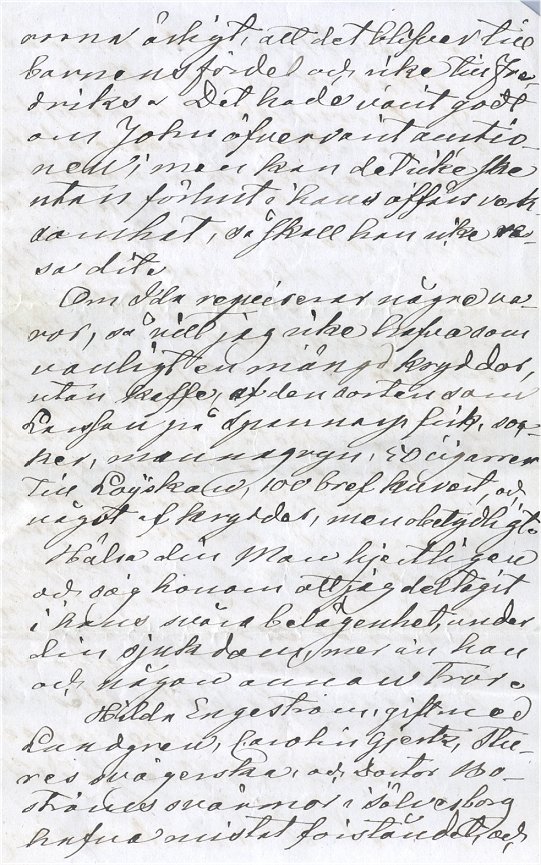 orna årligt, att det blifver till
barnens fördel och icke till Fre-
driks. Det hade varit godt
om John öfvervarit auctio-
nen; men kan det icke ske
utan förlust i hans affärs verk-
samhet, så skall han icke re-
sa dit.
Om Ida requirerar några va-
ror, så vill jag icke hafva som
vanligt en mängd kryddor,
utan kaffe, af den sorten som
på Spannarp fick, soc-
ker, mannagryn, 50 cigarrer
till, 100 bref kuvert, och
något af kryddor, men obetydligt.
Hälsa din Man hjertligen
och säg honom att jag deltagit
i hans svåra belägenhet, under
din sjukdom, mer än han
och någon annan tror.
Hilda Engeström, gift med
Lundgren, Carolin Gjertz, Thu-
res svägerska, och Doctor Bo-
ströms svärmor i Sölvesborg
hafva mistat förståndet, och